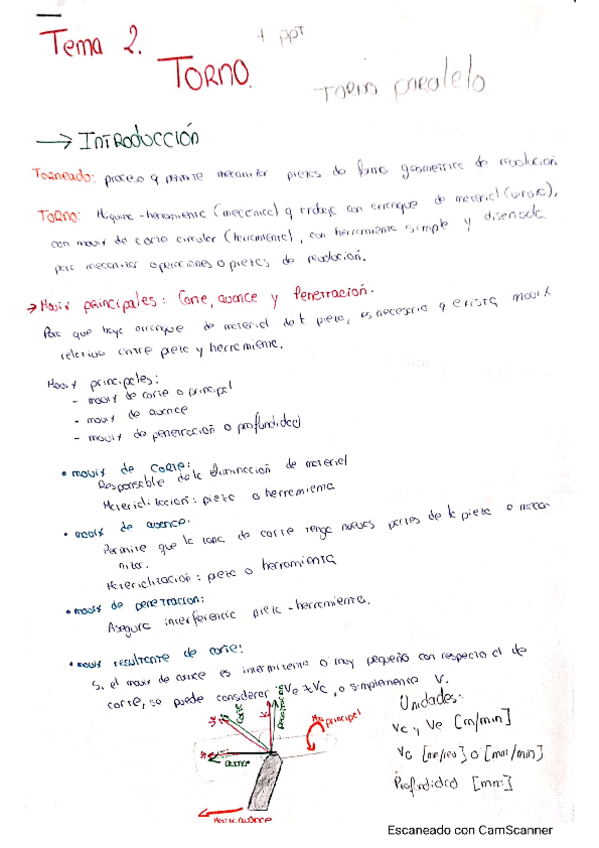 Tema 2.
+ ppt
TORNO.
TORNO paralelo
→ INTRODUCCIÓN
Torneado: proceso q permite mecanizar piezas de forma geométrica de revolución
TORNO: Máquina-herramienta (mecánica) q trabaja con arranque de material (viruta),
con movix de corte circular (herramienta), con herramienta simple y diseñada
para mecanizar operaciones o piezas de revolución.
→ Movix principales: Corte, avance y Penetración.
Para que haya arranque de material de la pieza, es necesario q exista movix
relativo entre pieza y herramienta.
Movix principales:
- movix de corte o principal
- movix de avance
- movix de penetración o profundidad
• movix de corte:
Responsable de la eliminación de material
Materialización: pieza o herramienta
• movix de avance.
Permite que la zona de corte tenga nuevas partes de la pieza a meca-
nizar.
Materialización: pieza o herramienta
• movix de penetración:
Asegura interferencia pieza-herramienta.
• movix resultante de corte:
Si el movix de avance es intermitente o muy pequeño con respecto al de
corte, se puede considerar Ve ≈ Vc, o simplemente V.
Corte
Penetración
principal
avance
Unidades:
Vc y Ve [m/min]
[mm/rev] o [mm/min]
Profundidad [mm]
Escaneado con CamScanner